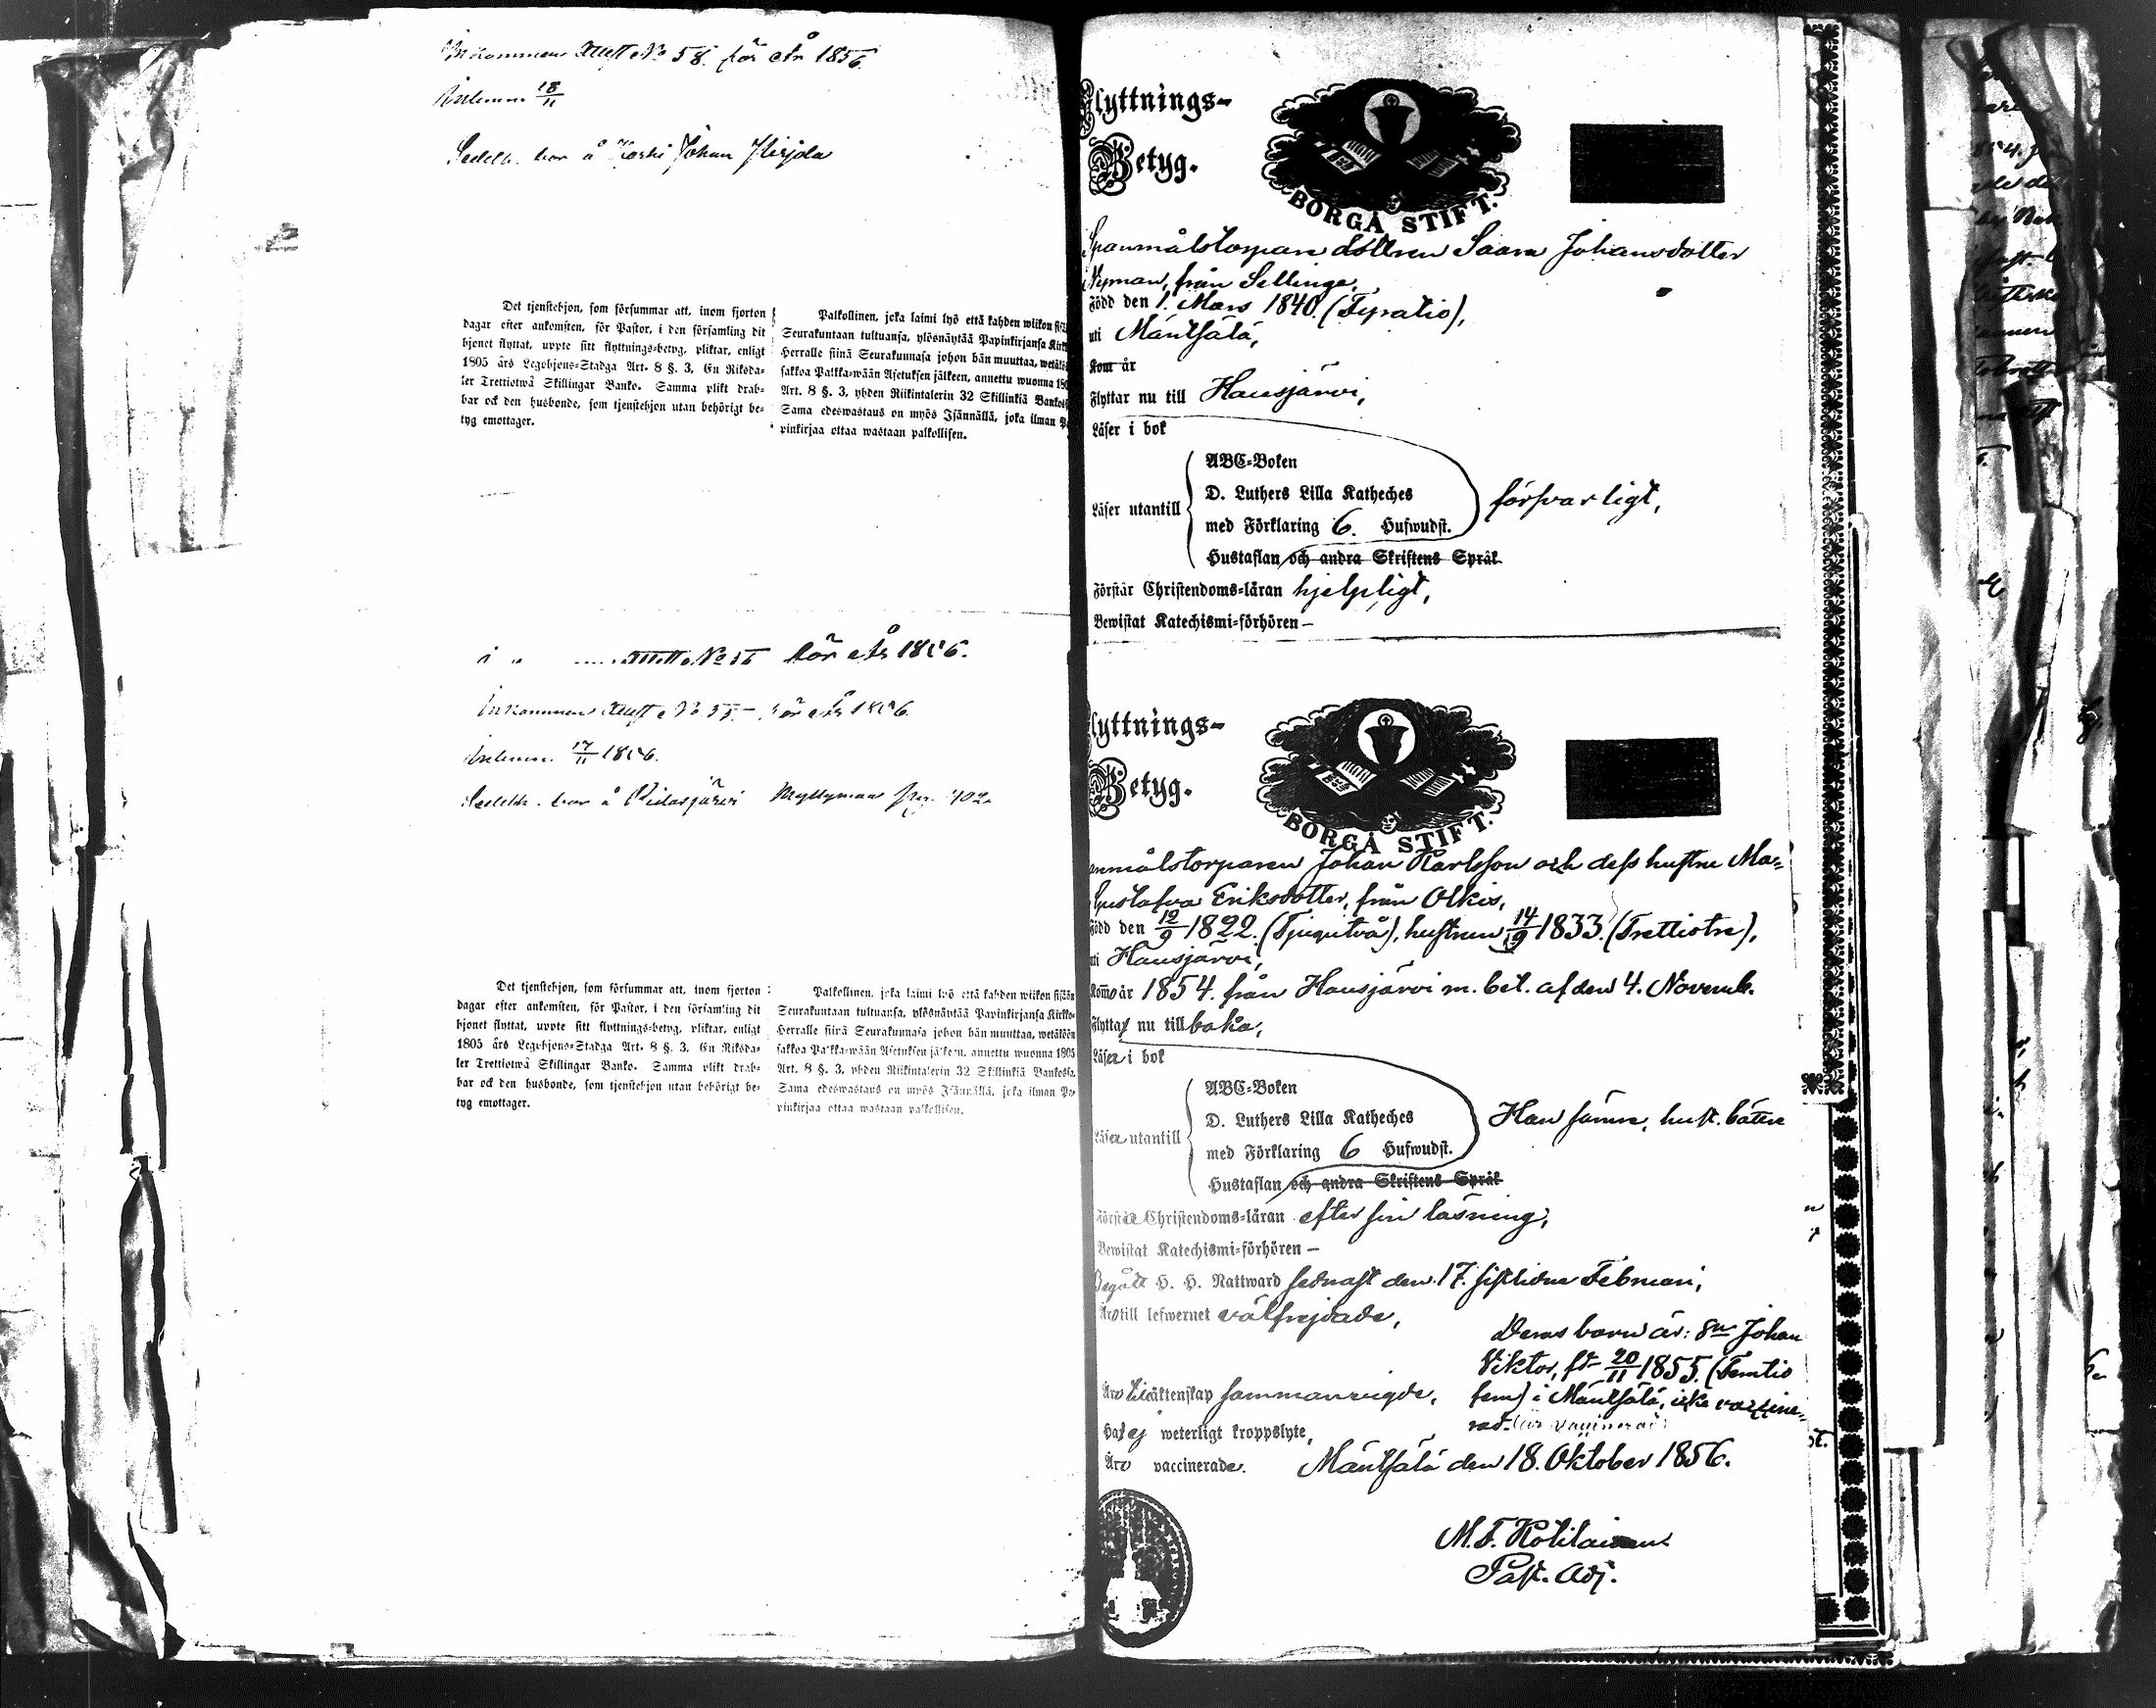 Inkommen Attest No 58. för År 1856
Inlemn. 18/11
Sedelh. bor å Koski Johan Heijda
Det tjenstehjon, som försummar att, inom fjorton
dagar efter ankomsten, för Pastor, i den församling dit
hjonet flyttat, uppte sitt flyttnings-betyg, pliktar, enligt
1805 års Legohjons-Stadga Art. 8 §. 3, En Riksda-
ler Trettiotwå Skillingar Banko. Samma plikt drab-
bar ock den husbonde, som tjenstehjon utan behörigt be-
tyg emottager.
Palkollinen, joka laimi lyö että kahden wiikon
Seurakuntaan tultuansa, ylösnäytää Papinkirjansa
Herralle siinä Seurakunnasa johon hän muuttaa,
sakkoa Palkka-wään Asetuksen jälkeen, annettu wuonna
Art. 8 §. 3, yhden Riikintalerin 32 Skillinkiä
Sama edeswastaus on myös Isännällä, joka ilman
pinkirjaa ottaa wastaan palkollisen.
Attest No 56 för År 1856.
Inkommen Attest No 55 för År 1856.
Inlemn. 17/11 1856.
Sedelh. bor å Ridasjärvi Myllymaa pag. 402
Det tjenstehjon, som försummar att, inom fjorton
dagar efter ankomsten, för Pastor, i den församling dit
hjonet flyttat, uppte sitt flyttnings-betyg, pliktar, enligt
1805 års Legohjons-Stadga Art. 8 §. 3, En Riksda-
ler Trettiotwå Skillingar Banko. Samma plikt drab-
bar ock den husbonde, som tjenstehjon utan behörigt be-
tyg emottager.
Palkollinen, joka laimi lyö että kahden wiikon sisään
Seurakuntaan tultuansa, ylösnäytää Papinkirjansa Kirkko-
Herralle siinä Seurakunnasa johon hän muuttaa, wetäköön
sakkoa Palkka-wään Asetuksen jälkeen, annettu wuonna 1805
Art. 8 §. 3, yhden Riikintalerin 32 Skillinkiä Bankosa.
Sama edeswastaus on myös Isännällä, joka ilman Pa-
pinkirjaa ottaa wastaan palkollisen.
Flyttnings-
Betyg.
BORGÅ STIFT.
Spanmålstorpare dottren Saara Johansdotter
Nyman, från Sellinge,
Född den 1. Mars 1840. (Fyratio),
uti Mäntsälä,
Kom år
Flyttar nu till Hausjärvi,
Läser i bok
ABC-Boken
D. Luthers Lilla Katheches
Läser utantill
med Förklaring 6. Hufwudst.
försvarligt,
Hustaflan och andra Skriftens Språk
Förstår Christendoms-läran hjelpligt,
Bewistat Katechismi-förhören –
Flyttnings-
Betyg.
BORGÅ STIFT.
anmålstorparen Johan Karlsson och dess hustru Ma-
Gustafva Eriksdotter, från Olkis,
Född den 12/9 1822. (Tjugutvå), hustrun 14/9 1833. (Trettiotre),
uti Hausjärvi,
Kommo år 1854. från Hausjärvi m. bet. af den 4. Novemb.
Flytta nu till baka,
Läsa i bok
ABC-Boken
D. Luthers Lilla Katheches
Läsa utantill
med Förklaring 6 Hufwudst.
Han sämre, hust. bättre
Hustaflan och andra Skriftens Språk
Förstå Christendoms-läran efter sin läsning,
Bewistat Katechismi-förhören –
Begått H. H. Nattward sednast den 17. sistlidne Februari,
Äro till lefwernet välfrejdade,
Deras barn är: Sn Johan
Viktor, fd 20/11 1855. (Femtio
fem) i Mäntsälä, icke vaccine-
rad.
Äro till äktenskap sammanvigde,
Ha ej weterligt kroppslyte,
Äro vaccinerade.
Mäntsälä den 18. Oktober 1856.
M. F. Kotilainen
Past. Adj.